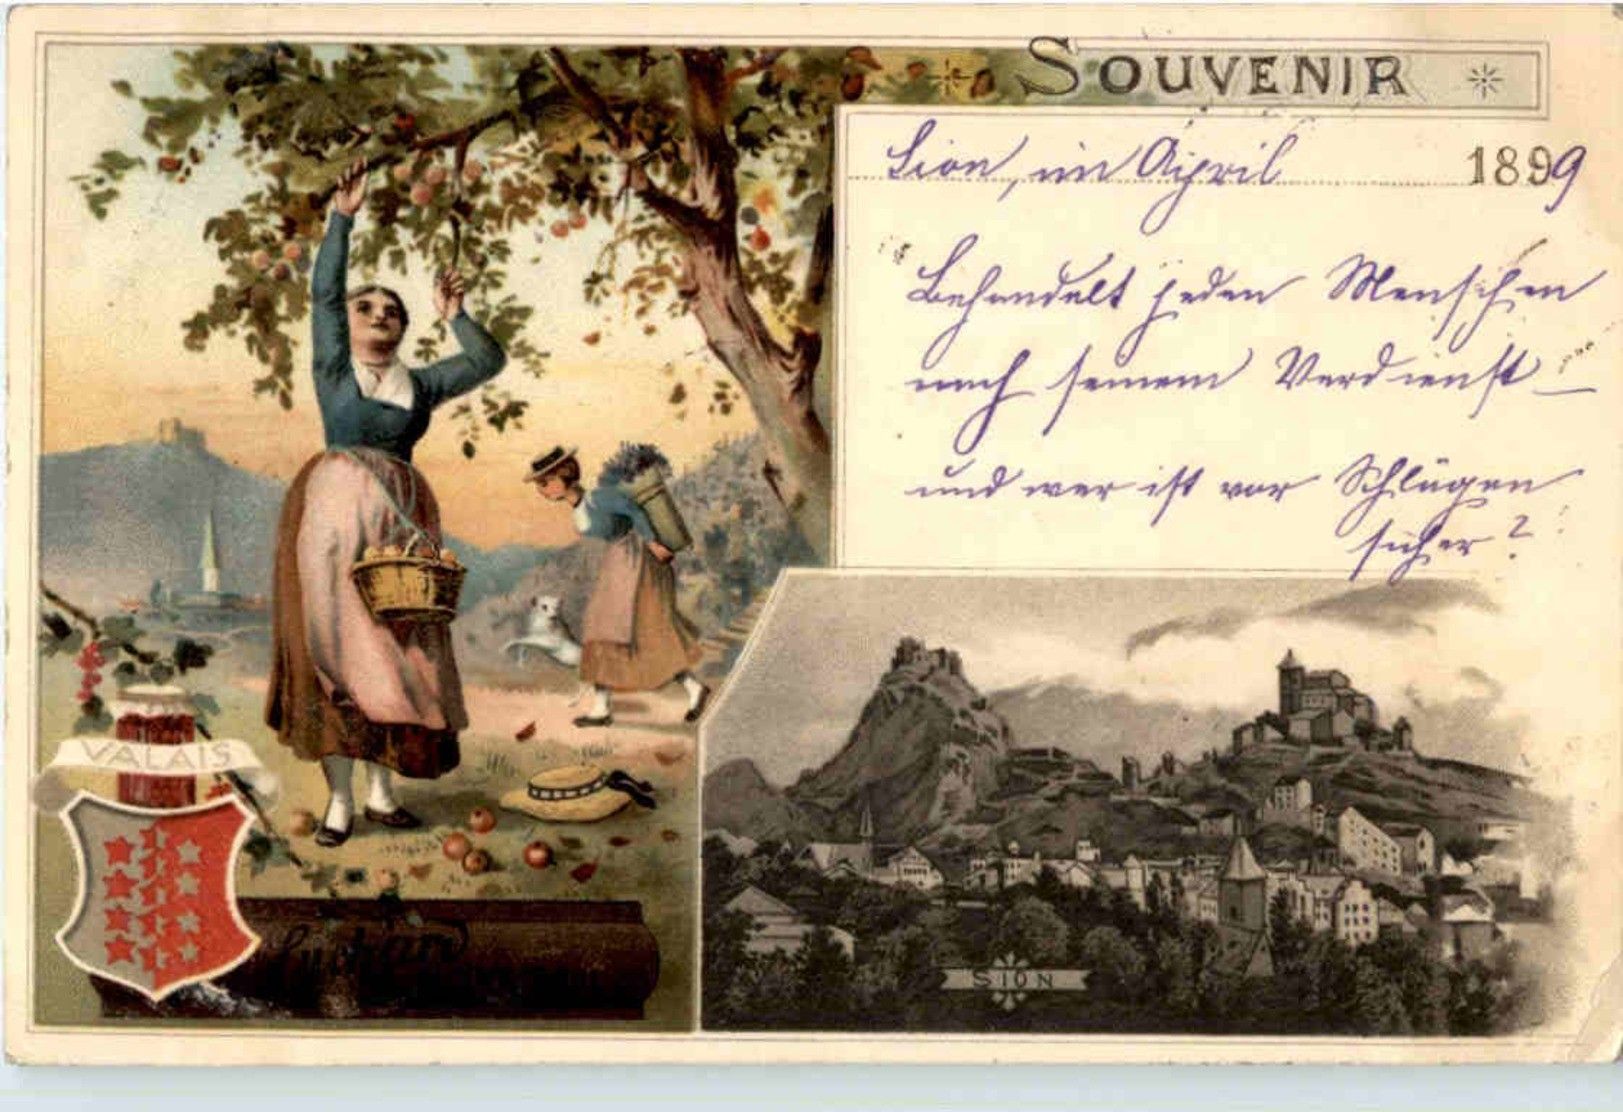 SOUVENIR
Sion, im April 1899
Behandelt jeden Menschen
nach seinem Verdienst –
und wer ist vor Schlägen
sicher?
VALAIS
SION